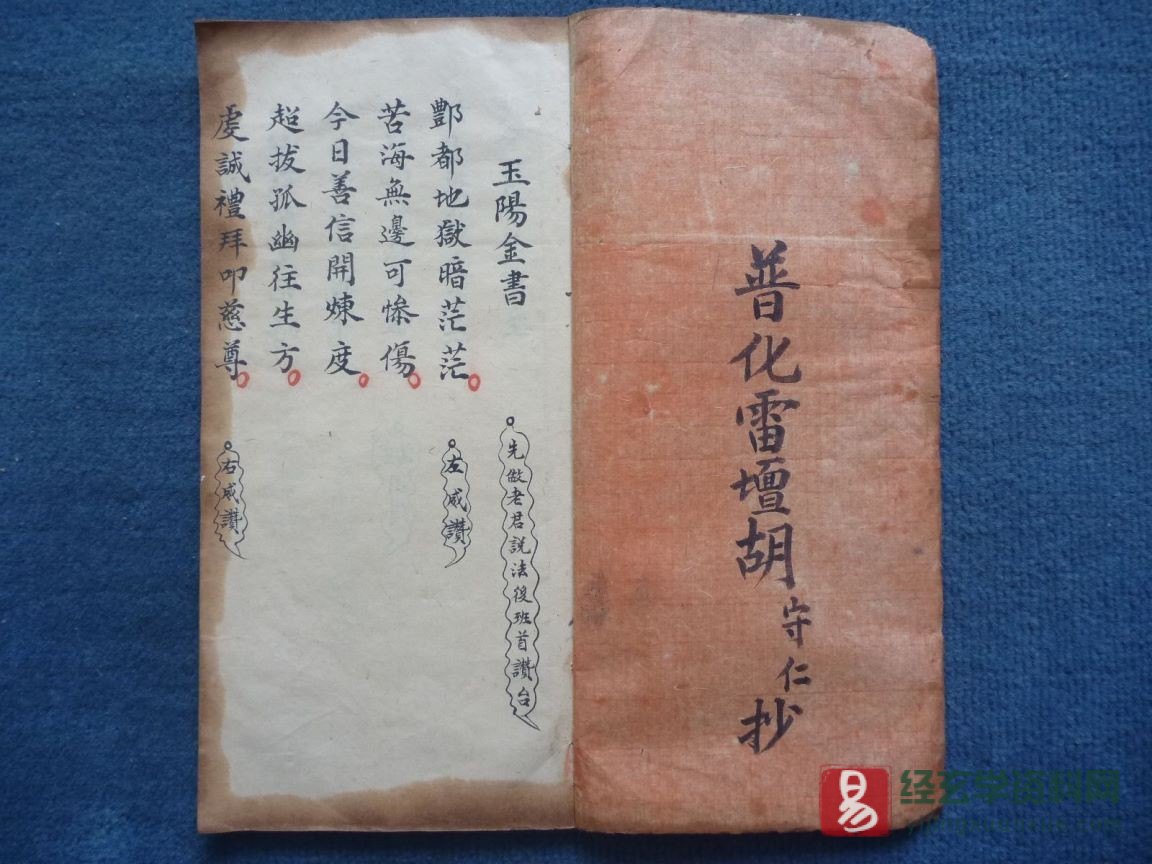 普化雷壇胡守仁抄
玉陽金書
先做老君說法後班首讚台
酆都地獄暗茫茫
左咸讚
苦海無邊可慘傷
今日善信開煉度
超拔孤幽往生方
虔誠禮拜叩慈尊
右咸讚
易
经玄学资料网